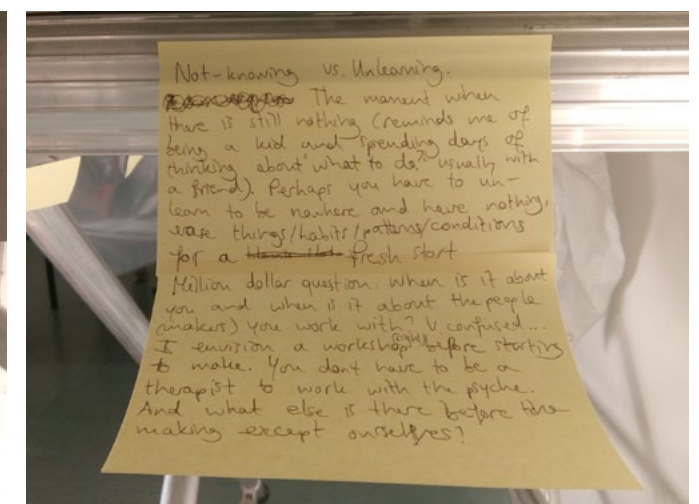 Not-knowing vs. Unlearning.
The moment when
there is still nothing (reminds me of
being a kid and spending days of
thinking about "what to do?" usually with
a friend). Perhaps you have to un-
learn to be nowhere and have nothing,
erase things/habits/patterns/conditions
for a fresh start
Million dollar question. When is it about
you and when is it about the people
(makers) you work with? V. confused...
I envision a workshop (right) before starting
to make. You dont have to be a
therapist to work with the psyche.
And what else is there before the
making except ourselves?